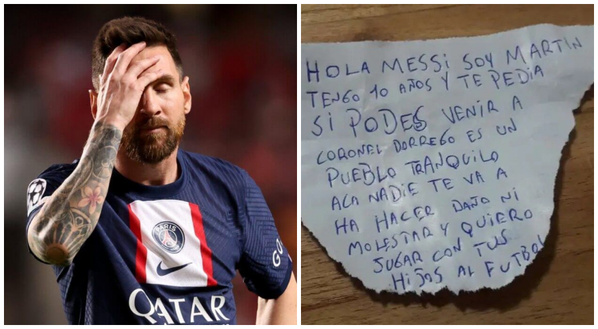 QATAR
HOLA MESSI SOY MARTIN
TENGO 10 AÑOS Y TE PEDIA
SI PODES VENIR A
CORONEL DORREGO ES UN
PUEBLO TRANQUILO
ACA NADIE TE VA A
HA HACER DAÑO NI
MOLESTAR Y QUIERO
JUGAR CON TUS
HIJOS AL FUTBOL